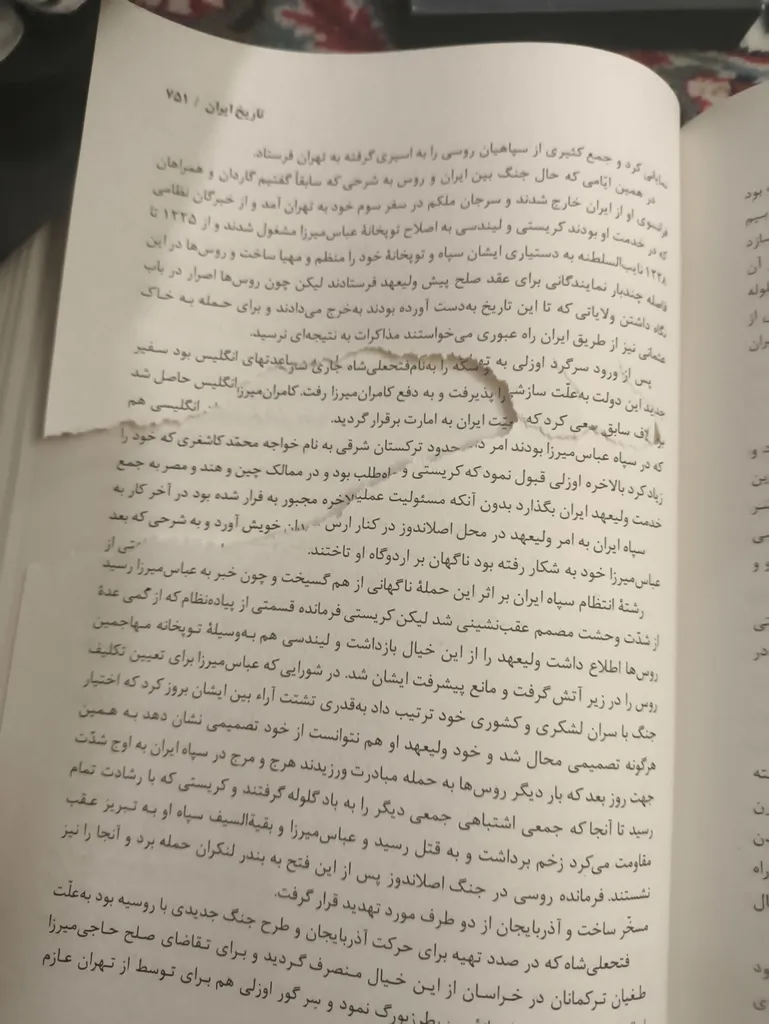 تاریخ ایران / ۷۵۱
نمایانی کرد و جمع کثیری از سپاهیان روسی را به اسیری گرفته به تهران فرستاد.
در همین ایّامی که حال جنگ بین ایران و روس به شرحی که سابقاً گفتیم گاردان و همراهان
فرانسوی او از ایران خارج شدند و سرجان ملکم در سفر سوم خود به تهران آمد و از خبرگان نظامی
که در خدمت او بودند کریستی و لیندسی به اصلاح توپخانهٔ عباس‌میرزا مشغول شدند و از ۱۲۲۵ تا
۱۲۲۸ نایب‌السلطنه به دستیاری ایشان سپاه و توپخانهٔ خود را منظم و مهیا ساخت و روس‌ها در این
فاصله چندبار نمایندگانی برای عقد صلح پیش ولیعهد فرستادند لیکن چون روس‌ها اصرار در باب
نگاه داشتن ولایاتی که تا این تاریخ به‌دست آورده بودند به‌خرج می‌دادند و برای حمله به خاک
عثمانی نیز از طریق ایران راه عبوری می‌خواستند مذاکرات به نتیجه‌ای نرسید.
پس از ورود سرگرد اوزلی به و سکه را به‌نام فتحعلی‌شاه جاری انگلیس بود سفیر
جدید این دولت به‌علّت سازش را پذیرفت و به دفع کامران‌میرزا رفت. کامران‌میرزا انگلیس حاصل شد
سابق سعی کرد که ایران به امارت برقرار گردید. انگلیسی هم
که در سپاه عباس‌میرزا بودند امر حدود ترکستان شرقی به نام خواجه محمّد کاشغری که خود را
زیاد کرد بالاخره اوزلی قبول نمود که کریستی و طلب بود و در ممالک چین و هند و مصر به جمع
خدمت ولیعهد ایران بگذارد بدون آنکه مسئولیت مجبور به فرار شده بود در آخر کار به
سپاه ایران به امر ولیعهد در محل اصلاندوز در کنار خویش آورد و به شرحی که بعد
عباس‌میرزا خود به شکار رفته بود ناگهان بر اردوگاه او تاختند. از
رشتهٔ انتظام سپاه ایران بر اثر این حملهٔ ناگهانی از هم گسیخت و چون خبر به عباس‌میرزا رسید
از شدّت وحشت مصمم عقب‌نشینی شد لیکن کریستی فرمانده قسمتی از پیاده‌نظام که از کمی عدهٔ
روس‌ها اطلاع داشت ولیعهد را از این خیال بازداشت و لیندسی هم به‌وسیلهٔ توپخانه مهاجمین
روس را در زیر آتش گرفت و مانع پیشرفت ایشان شد. در شورایی که عباس‌میرزا برای تعیین تکلیف
جنگ با سران لشکری و کشوری خود ترتیب داد به‌قدری تشتت آراء بین ایشان بروز کرد که اختیار
هرگونه تصمیمی محال شد و خود ولیعهد او هم نتوانست از خود تصمیمی نشان دهد به همین
جهت روز بعد که بار دیگر روس‌ها به حمله مبادرت ورزیدند هرج و مرج در سپاه ایران به اوج شدّت
رسید تا آنجا که جمعی اشتباهی جمعی دیگر را به باد گلوله گرفتند و کریستی که با رشادت تمام
مقاومت می‌کرد زخم برداشت و به قتل رسید و عباس‌میرزا و بقیةالسیف سپاه او به تبریز عقب
نشستند. فرمانده روسی در جنگ اصلاندوز پس از این فتح به بندر لنکران حمله برد و آنجا را نیز
مسخّر ساخت و آذربایجان از دو طرف مورد تهدید قرار گرفت.
فتحعلی‌شاه که در صدد تهیه برای حرکت آذربایجان و طرح جنگ جدیدی با روسیه بود به‌علّت
طغیان ترکمانان در خراسان از این خیال منصرف گردید و برای تقاضای صلح حاجی‌میرزا
نمود و سر گور اوزلی هم برای توسط از تهران عازم